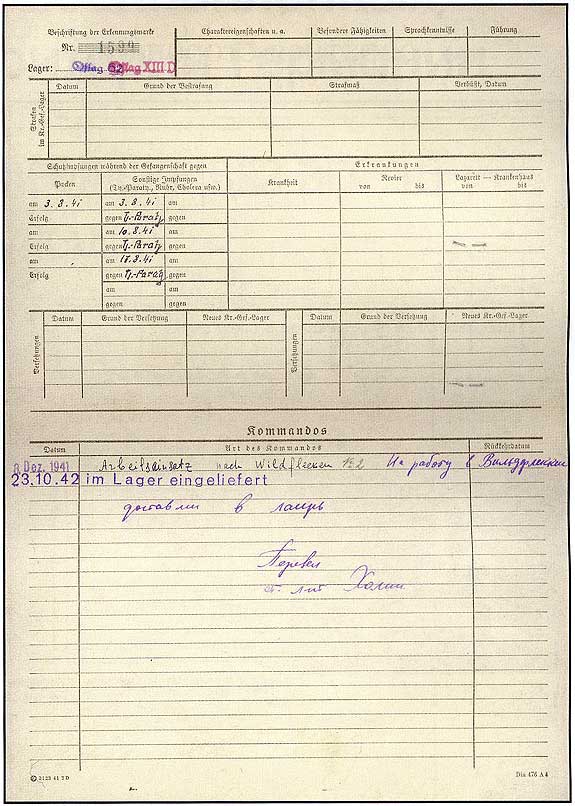 Beschriftung der Erkennungsmarke
Nr. 1599
Lager: Oflag 62 Oflag XIII D
Charaktereigenschaften u. a.
Besondere Fähigkeiten
Sprachkenntnisse
Führung
Strafen im Kr.-Gef.-Lager
Datum
Grund der Bestrafung
Strafmaß
Verbüßt, Datum
Schutzimpfungen während der Gefangenschaft gegen
Erkrankungen
Pocken
Sonstige Impfungen
(Ty.-Paraty., Ruhr, Cholera usw.)
Krankheit
Revier
von bis
Lazarett — Krankenhaus
von bis
am 3.8.41 am 3.8.41 am
Erfolg gegen Ty.-Paraty. gegen
am am 10.8.41 am
Erfolg gegen Ty.-Paraty. gegen
am am 17.8.41 am
Erfolg gegen Ty.-Paraty. gegen
am am
gegen gegen
Versetzungen
Datum
Grund der Versetzung
Neues Kr.-Gef.-Lager
Versetzungen
Datum
Grund der Versetzung
Neues Kr.-Gef.-Lager
Kommandos
Datum
Art des Kommandos
Rückkehrdatum
8 Dez. 1941 Arbeitseinsatz nach Wildflecken На работу в Вильдфлеккен
23.10.42 im Lager eingeliefert
доставлен в лагерь
Перевел
ст. л-т
2123 41 2 D
Din 476 A 4